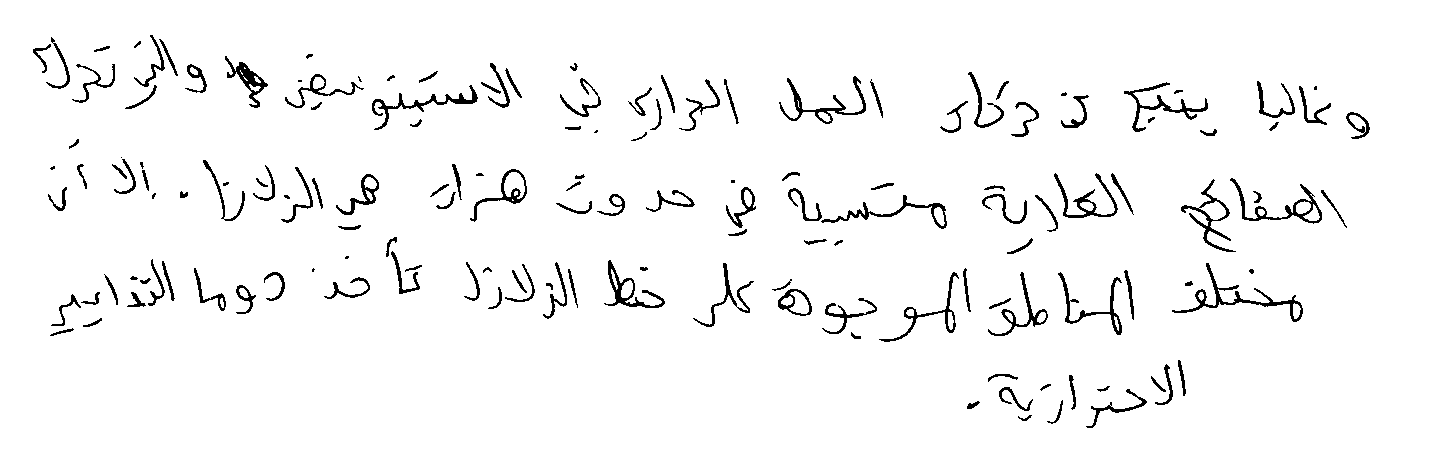 وغالبا ينتج عن حركات العمل الحراري في الاستينوسفير والتي تحرك
الصفائح القارية متسببة في حدوث هزات هي الزلازل. إلا أن
مختلف المناطق الموجودة على خط الزلازل تأخذ دوما التدابير
الاحترازية.